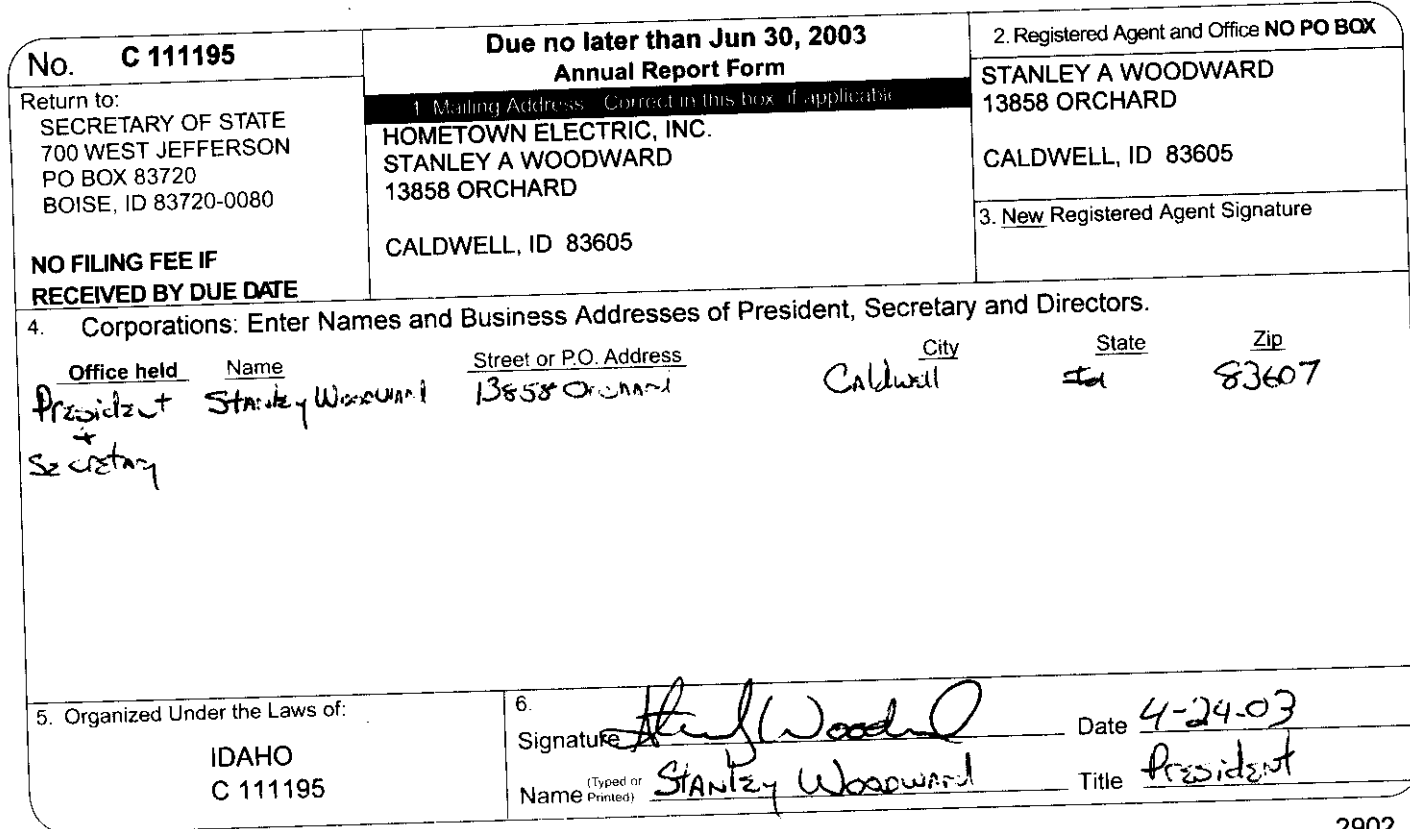 No. C 111195
Return to:
SECRETARY OF STATE
700 WEST JEFFERSON
PO BOX 83720
BOISE, ID 83720-0080
NO FILING FEE IF
RECEIVED BY DUE DATE
Due no later than Jun 30, 2003
Annual Report Form
1. Mailing Address Correct in this box if applicable
HOMETOWN ELECTRIC, INC.
STANLEY A WOODWARD
13858 ORCHARD
CALDWELL, ID 83605
2. Registered Agent and Office NO PO BOX
STANLEY A WOODWARD
13858 ORCHARD
CALDWELL, ID 83605
3. New Registered Agent Signature
4. Corporations: Enter Names and Business Addresses of President, Secretary and Directors.
Office held Name Street or P.O. Address City State Zip
President Stanley Woodward 13858 Orchard Caldwell Id 83607
+
Secretary
5. Organized Under the Laws of:
IDAHO
C 111195
6.
Signature Stanley Woodward Date 4-24-03
Name (Typed or Printed) Stanley Woodward Title President
2902